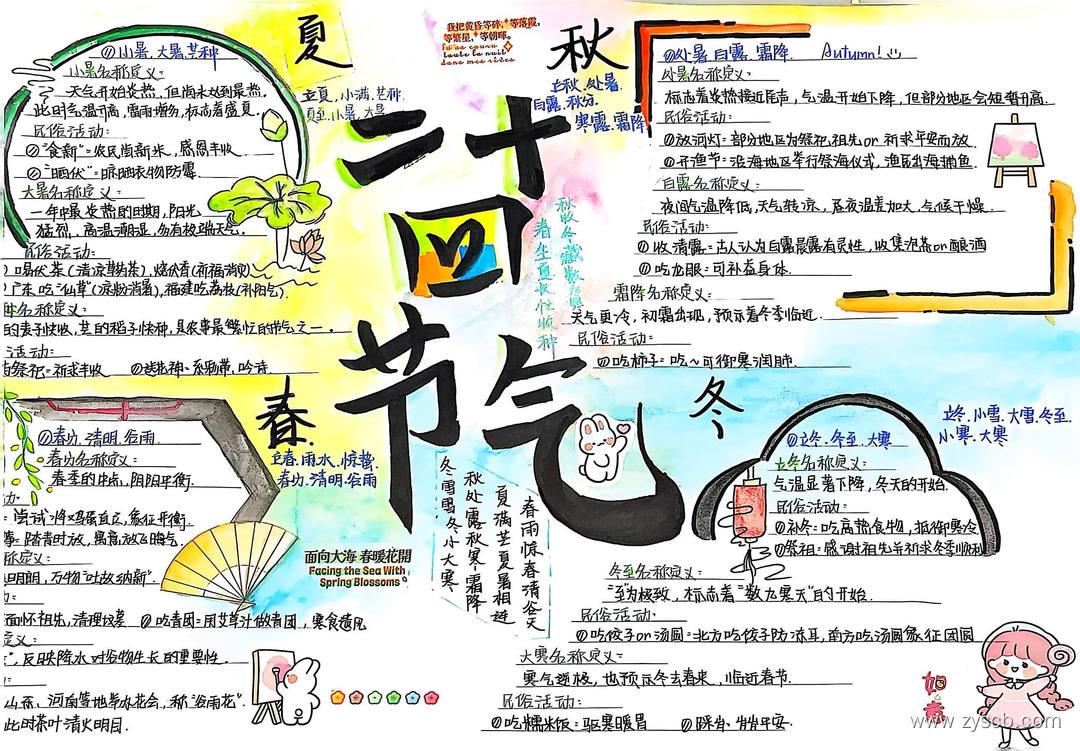 夏
①小暑、大暑、芒种
小暑名称定义:
天气开始炎热,但尚未达到最热。
此时气温升高,雷雨增多,标志着盛夏。
民俗活动:
①“食新”=农民尚新米,感恩丰收
②“晒伏”=晾晒衣物防霉。
大暑名称定义:
一年中最炎热的日期,阳光
猛烈、高温潮湿,易有极端天气。
民俗活动:
喝伏茶(清凉草药茶),烧伏香(祈福消灾)
广东吃“仙草”(凉粉消暑),福建吃荔枝(补阳气)
名称定义:
的麦子快收,芒的稻子快种,具农事最繁忙的节气之一。
活动:
祭祀=祈求丰收 ②送花神=系彩带、吟诗
立夏、小满、芒种、
夏至、小暑、大暑
我把黄昏等碎,等落霞,
等繁星,等朝晖。
toute la nuit
dans mes rêves
二十
四
节气
秋
立秋、处暑、
白露、秋分、
寒露、霜降
①处暑、白露、霜降 Autumn!
处暑名称定义:
标志着炎热接近尾声,气温开始下降,但部分地区会短暂升高.
民俗活动:
①放河灯=部分地区为祭祀祖先or祈求平安而放
②开渔节=沿海地区举行祭海仪式,渔民出海捕鱼.
白露名称定义:
夜间气温降低,天气转凉,昼夜温差加大,气候干燥.
民俗活动:
①收清露=古人认为白露晨露有灵性,收集泡茶or酿酒
②吃龙眼=可补益身体.
霜降名称定义:
天气更冷,初霜出现,预示着冬季临近.
民俗活动:
①吃柿子=吃~可御寒润肺
春
立春、雨水、惊蛰、
春分、清明、谷雨
①春分、清明、谷雨
春分名称定义:
春季的中点,阴阳平衡.
尝试将鸡蛋直立,象征平衡.
踏青时放,寓意放飞晦气.
称定义:
明朗,万物“吐故纳新”.
缅怀祖先,清理坟墓 ②吃青团=用艾草汁做青团,寒食遗风
定义:
反映降水对谷物生长的重要性.
山东、河南等地举办花会,称“谷雨花”.
此时茶叶清火明目.
面向大海 春暖花開
Facing the Sea With
Spring Blossoms
春雨惊春清谷天
夏满芒夏暑相连
秋处露秋寒霜降
冬雪雪冬小大寒
冬
立冬、小雪、大雪、冬至、
小寒、大寒
①立冬、冬至、大寒
立冬名称定义:
气温显著下降,冬天的开始.
民俗活动:
①补冬=吃高热食物,抵御寒冷
②祭祖=感谢祖先并祈求冬季顺利
冬至名称定义:
“至”为极致,标志着“数九寒天”的开始.
民俗活动:
①吃饺子or汤圆=北方吃饺子防冻耳,南方吃汤圆象征团圆
大寒名称定义:
寒气逆极,也预示冬去春来,临近春节.
民俗活动:
①吃糯米饭=驱寒暖胃 ②踩岁=岁岁平安.
www.zyscb.com